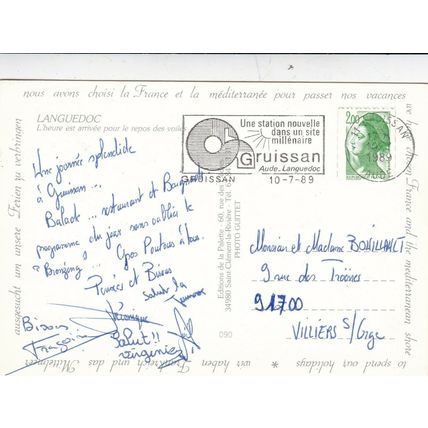 nous avons choisi la France et la méditerranée pour passer nos vacances
LANGUEDOC
L'heure est arrivée pour le repos des voiles
Une journée splendide
à Gruissan...
Balade... restaurant et Baignade
programme du jour sans oublier le
"Bronzing"... Gros Poutous à tous.
Pensées et Bises
Salut la
Bisous
Françoise
Véronique
Salut!!
Virginie
Une station nouvelle
dans un site
millénaire
Gruissan
Aude. Languedoc
GRUISSAN
10-7-89
2,00
1989
Editions de la Palette - 60, rue des
34980 Saint-Clément-la-Rivière - Tél.
PHOTO GUITTET
090
Monsieur et Madame BOUILLAULT
9 rue des Troènes
91700
VILLIERS S/Orge
we have chosen France and the mediterranean shore to spent our holidays
wir haben Frankreich und das Mittelmeer ausgesucht um unsere Ferien zu verbringen